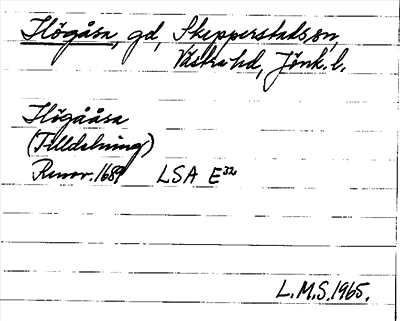 Högåsa, gd, Skepperstads sn,
Västra hd, Jönk. l.
Högååsa
(Tilldelning)
Renov. 1689 LSA E³²
L.M.S. 1965.